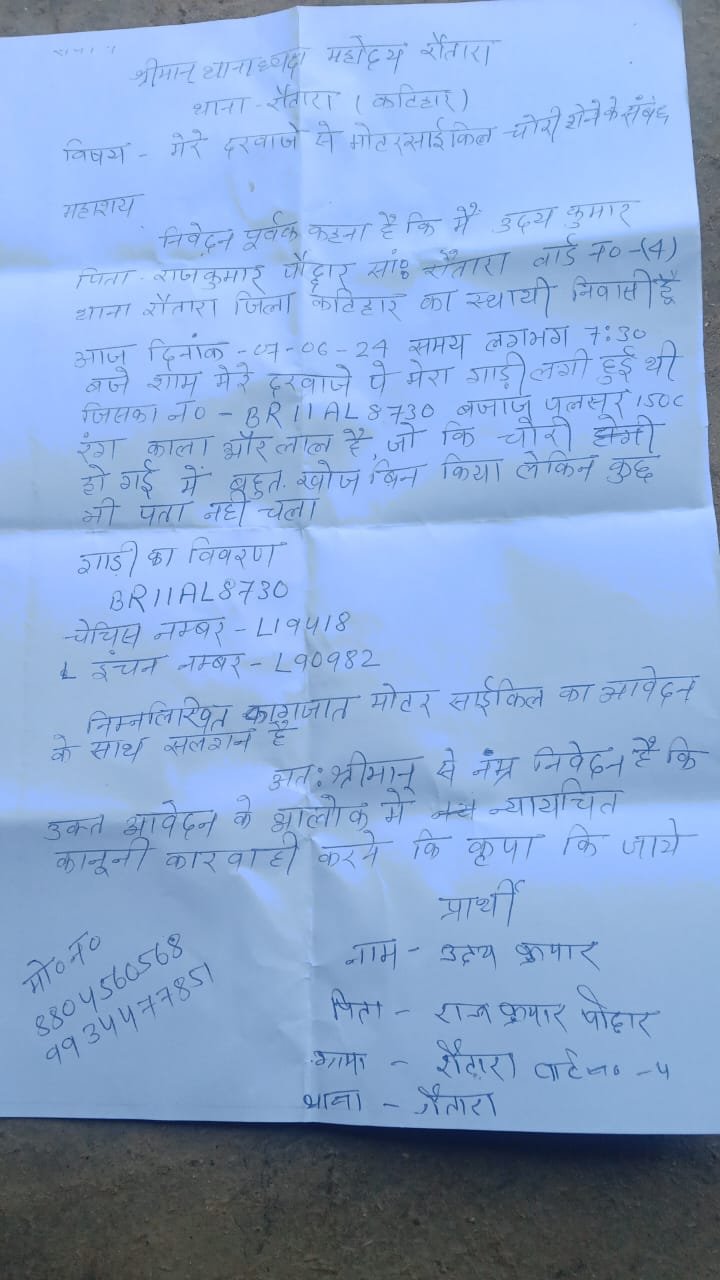 श्रीमान् थानाध्यक्ष महोदय रौतारा
थाना - रौतारा (कटिहार)
विषय - मेरे दरवाजे से मोटरसाईकिल चोरी होने के संबंध
महाशय
निवेदन पूर्वक कहना है कि मैं उदय कुमार
पिता - राजकुमार पौद्दार सा॰ रौतारा वार्ड न०-(4)
थाना रौतारा जिला कटिहार का स्थायी निवासी हूँ
आज दिनांक -07-06-24 समय लगभग 7:30
बजे शाम मेरे दरवाजे पे मेरा गाड़ी लगी हुई थी
जिसका न० - BR11AL8730 बजाज पलसर 150C
रंग काला और लाल है, जो कि चोरी
हो गई में बहुत खोज बिन किया लेकिन कुछ
भी पता नही चला
गाड़ी का विवरण
BR11AL8730
चेचिस नम्बर - L19418
इंचन नम्बर - L90982
निम्नलिखित कागजात मोटर साईकिल का आवेदन
के साथ सलग्न है
अत: श्रीमान् से नम्र निवेदन है कि
उक्त आवेदन के आलोक में न्यायचित
कानूनी कारवाही करने कि कृपा कि जाये
प्रार्थी
नाम - उदय कुमार
पिता - राज कुमार पोद्दार
ग्राम - रौतारा वार्ड न० - 4
थाना - रौतारा
मो० न०
8804560568
9934477851